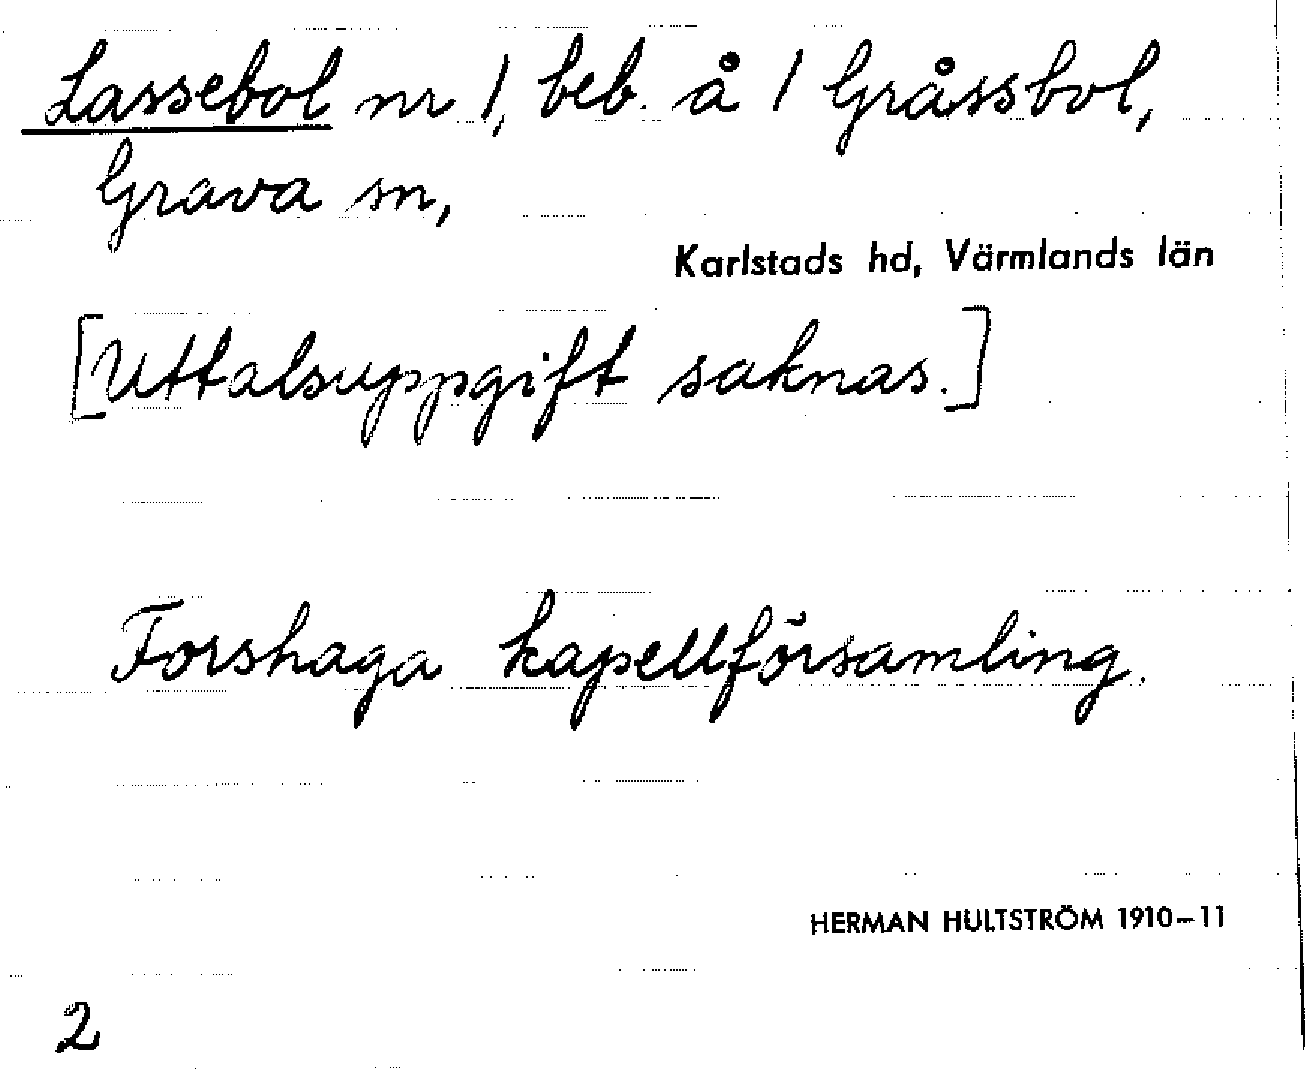 Lassebol nr 1, beb. å 1 Gråssbol,
Grava sn,
Karlstads hd, Värmlands län
[Uttalsuppgift saknas.]
Forshaga kapellförsamling.
HERMAN HULTSTRÖM 1910–11
2